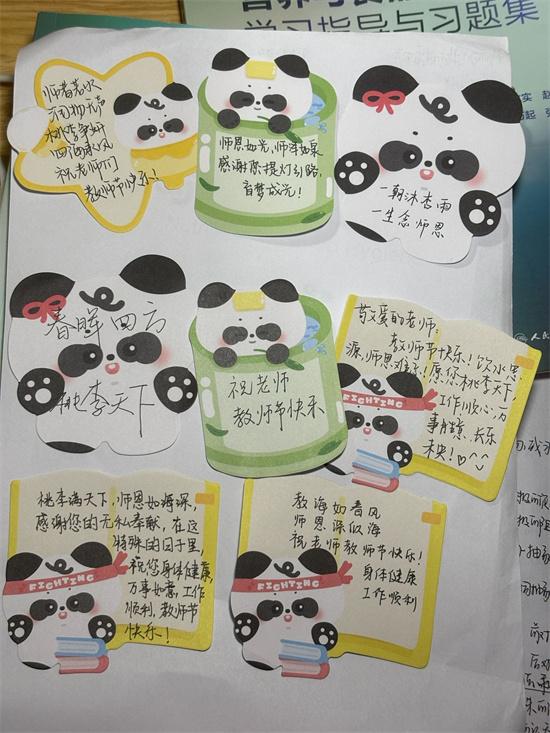 学习指导与习题集
师者若水
润物无声
桃李争妍
四海春风
祝老师们
教师节快乐!
师恩如光,师泽如粱
感谢您提灯引路,
育梦成光!
一朝沐杏雨
一生念师恩
春晖四方
桃李天下
祝老师
教师节快乐
敬爱的老师:
教师节快乐!饮水思
源,师恩难忘!愿您桃李天下,
工作顺心,万
事胜意,长乐
未央!
FIGHTING
桃李满天下,师恩如海深,
感谢您的无私奉献,在这
特殊的日子里,
祝您身体健康,
万事如意,工作
顺利,教师节
快乐!
FIGHTING
教诲如春风
师恩深似海
祝老师教师节快乐!
身体健康
工作顺利
FIGHTING